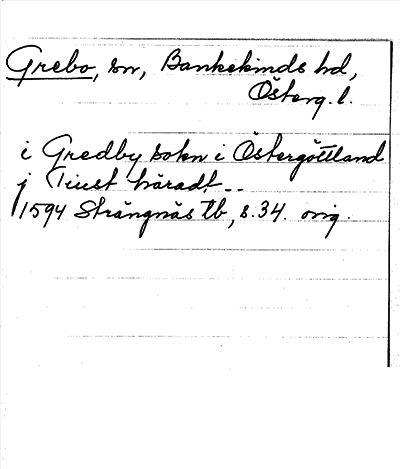 Grebo, sn, Bankekinds hd,
Österg. l.
i Gredby sokn i Östergöttland
j Tiust häradt --
1594 Strängnäs Tb, s. 34. orig.